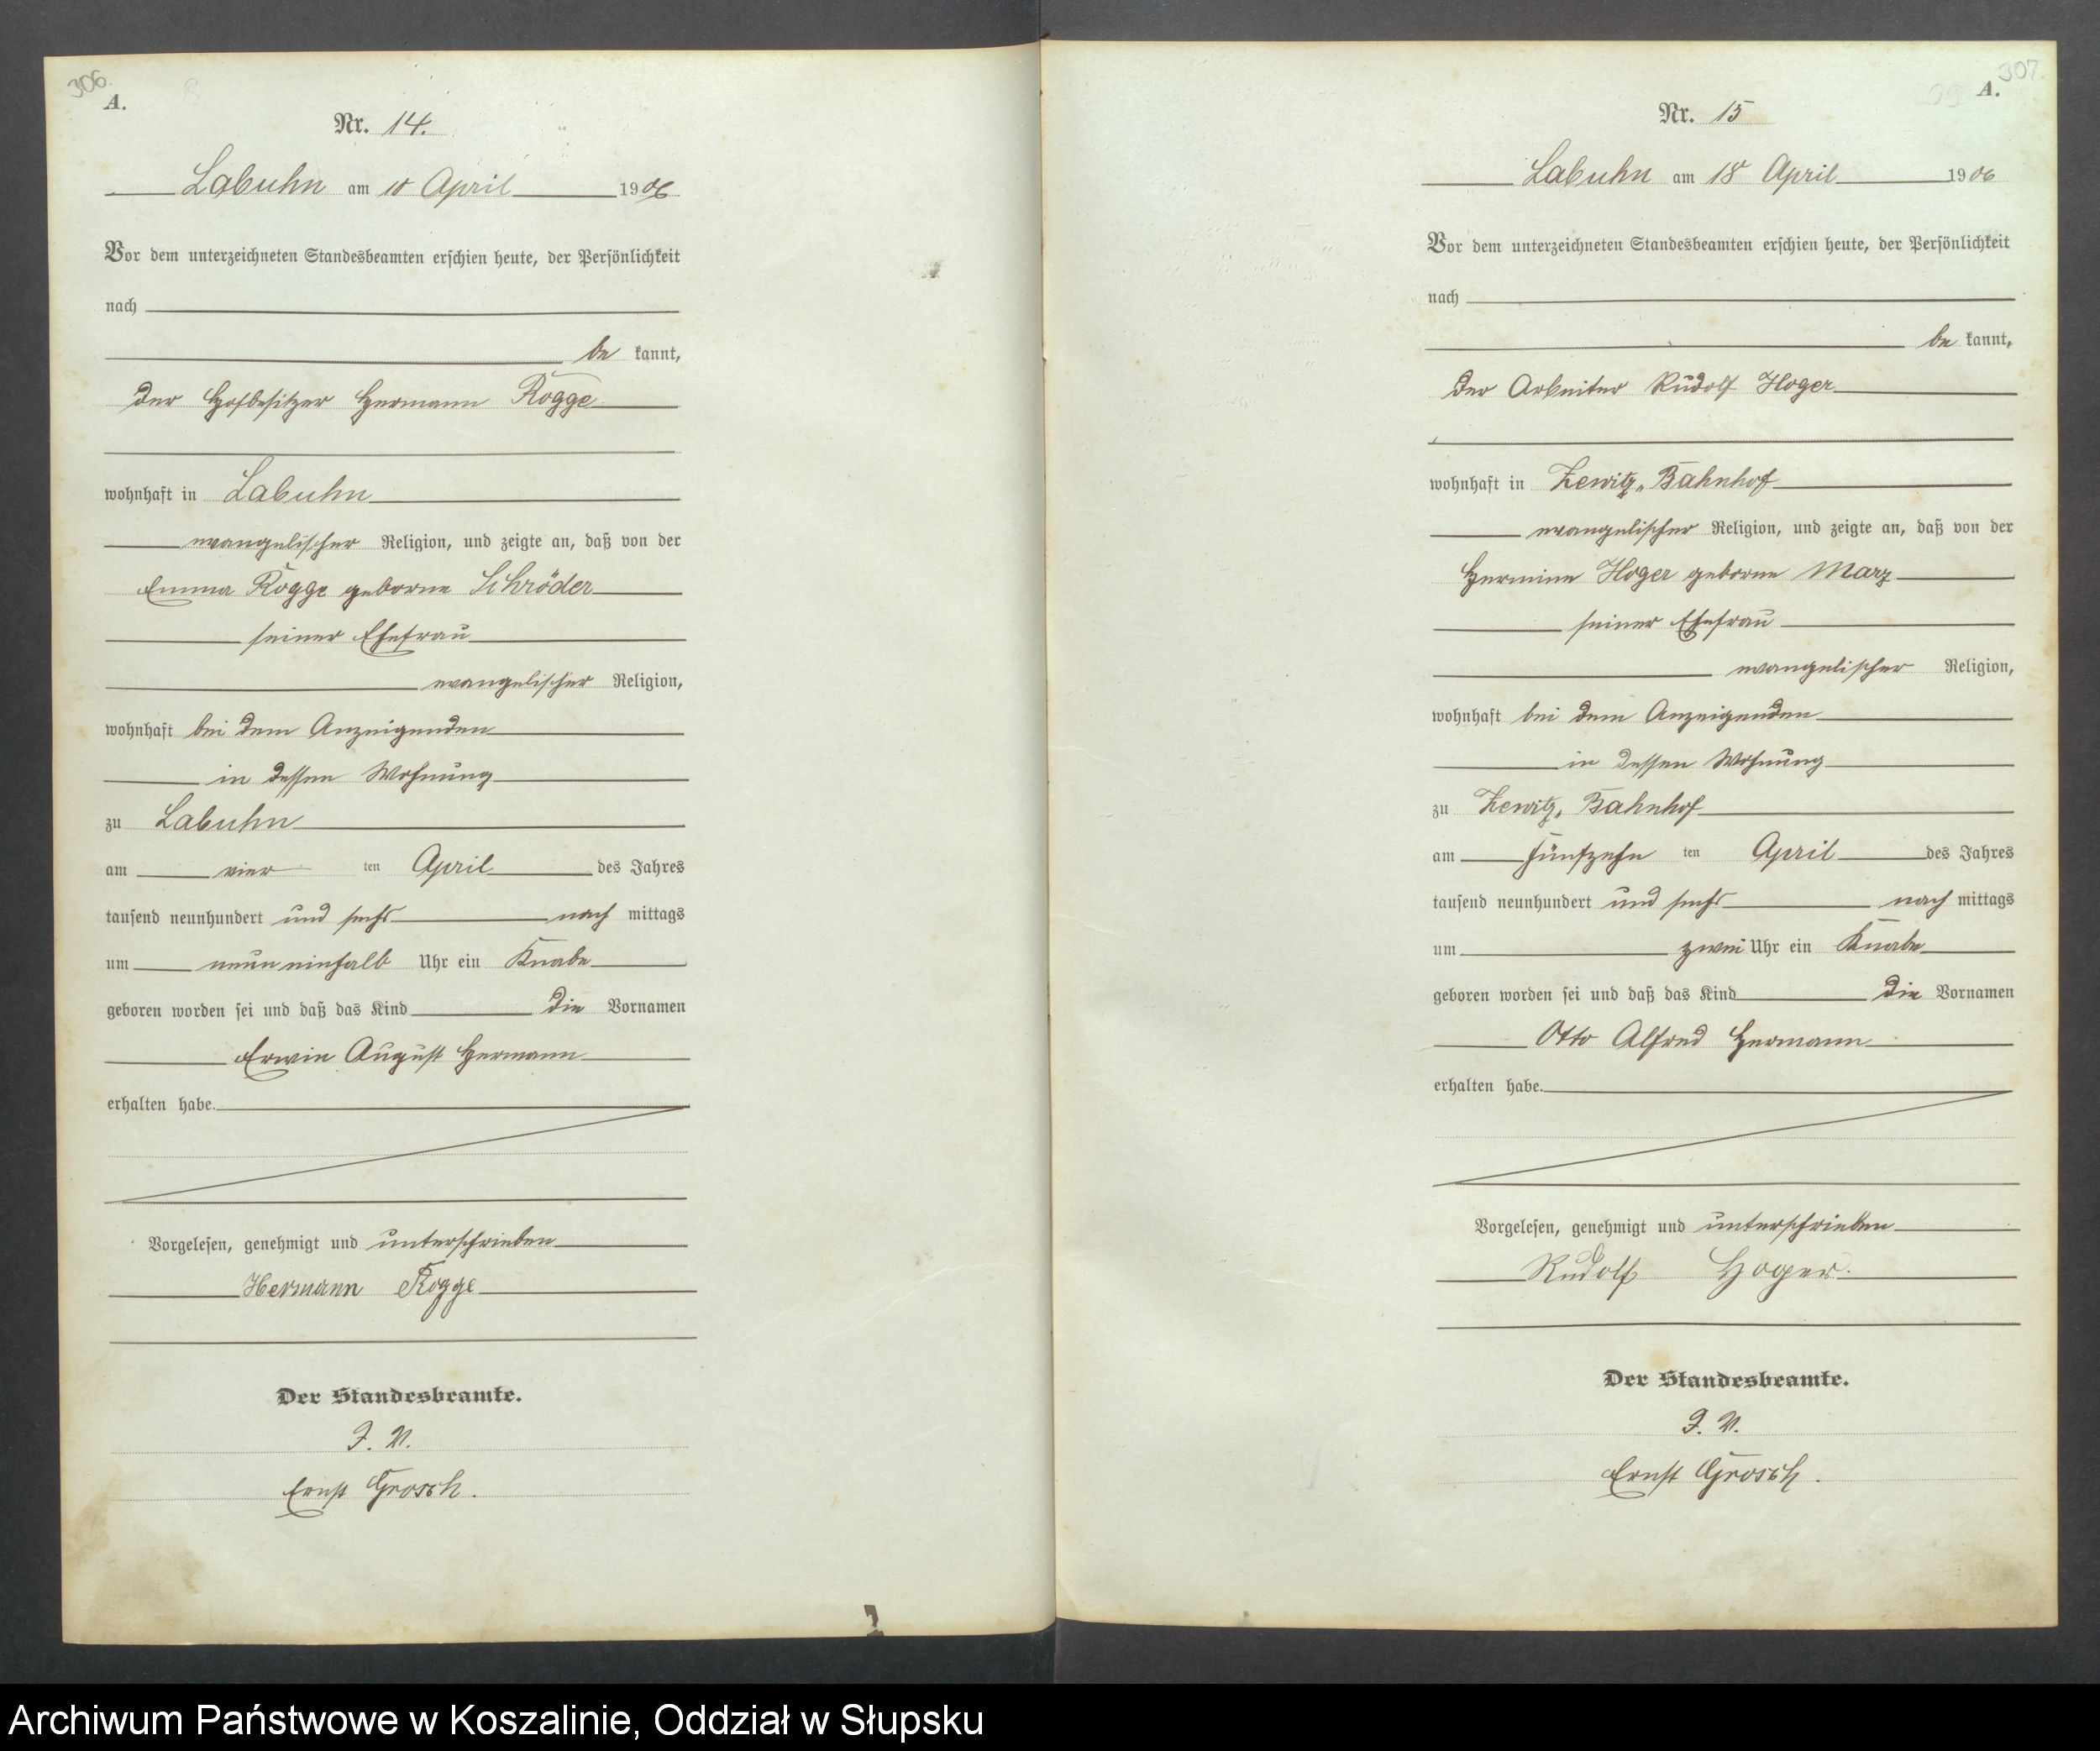 306.
A.
Nr. 14.
Labuhn am 10 April 1906
Vor dem unterzeichneten Standesbeamten erschien heute, der Persönlichkeit
nach
be kannt,
der Hofbesitzer Hermann Rogge
wohnhaft in Labuhn
evangelischer Religion, und zeigte an, daß von der
Emma Rogge geborne Schröder
seiner Ehefrau
evangelischer Religion,
wohnhaft bei dem Anzeigenden
in dessen Wohnung
zu Labuhn
am vier ten April des Jahres
tausend neunhundert und sechs nach mittags
um neun einhalb Uhr ein Knabe
geboren worden sei und daß das Kind die Vornamen
Erwin August Hermann
erhalten habe.
Vorgelesen, genehmigt und unterschrieben
Hermann Rogge
Der Standesbeamte.
J. V.
Ernst Grosch.
307.
A.
Nr. 15
Labuhn am 18 April 1906
Vor dem unterzeichneten Standesbeamten erschien heute, der Persönlichkeit
nach
be kannt,
der Arbeiter Rudolf Hoger
wohnhaft in Zewitz, Bahnhof
evangelischer Religion, und zeigte an, daß von der
Hermine Hoger geborne Marz
seiner Ehefrau
evangelischer Religion,
wohnhaft bei dem Anzeigenden
in dessen Wohnung
zu Zewitz, Bahnhof
am fünfzehn ten April des Jahres
tausend neunhundert und sechs nach mittags
um zwei Uhr ein Knabe
geboren worden sei und daß das Kind die Vornamen
Otto Alfred Hermann
erhalten habe.
Vorgelesen, genehmigt und unterschrieben
Rudolf Hoger.
Der Standesbeamte.
J. V.
Ernst Grosch.
Archiwum Państwowe w Koszalinie, Oddział w Słupsku